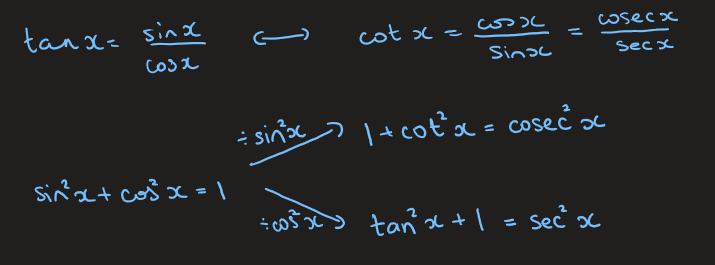 tan x = sin x / cos x ⟷ cot x = cos x / sin x = cosec x / sec x
÷ sin²x → 1 + cot² x = cosec² x
sin² x + cos² x = 1
÷ cos² x → tan² x + 1 = sec² x